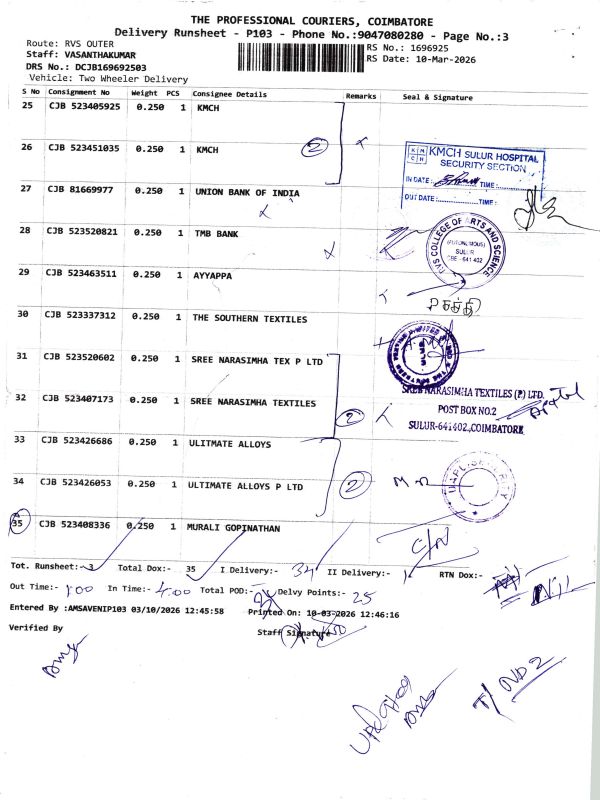 THE PROFESSIONAL COURIERS, COIMBATORE
Delivery Runsheet - P103 - Phone No.:9047080280 - Page No.:3
Route: RVS OUTER
Staff: VASANTHAKUMAR
DRS No.: DCJB169692503
Vehicle: Two Wheeler Delivery
RS No.: 1696925
RS Date: 10-Mar-2026
S No Consignment No Weight PCS Consignee Details Remarks Seal & Signature
25 CJB 523405925 0.250 1 KMCH
26 CJB 523451035 0.250 1 KMCH 2
KMCH SULUR HOSPITAL
SECURITY SECTION
IN DATE: TIME:
OUT DATE: TIME:
27 CJB 81669977 0.250 1 UNION BANK OF INDIA
28 CJB 523520821 0.250 1 TMB BANK
RVS COLLEGE OF ARTS AND SCIENCE
(AUTONOMOUS)
SULUR
CBE - 641 402
29 CJB 523463511 0.250 1 AYYAPPA
சக்தி
30 CJB 523337312 0.250 1 THE SOUTHERN TEXTILES
31 CJB 523520602 0.250 1 SREE NARASIMHA TEX P LTD
32 CJB 523407173 0.250 1 SREE NARASIMHA TEXTILES 2
SREE NARASIMHA TEXTILES (P) LTD.
POST BOX NO.2
SULUR-641402,COIMBATORE
33 CJB 523426686 0.250 1 ULITMATE ALLOYS
34 CJB 523426053 0.250 1 ULTIMATE ALLOYS P LTD 2
35 CJB 523408336 0.250 1 MURALI GOPINATHAN
C/N
Tot. Runsheet:- 3 Total Dox:- 35 I Delivery:- 34 II Delivery:- 1 RTN Dox:- NIL
Out Time:- 1.00 In Time:- 4.00 Total POD:- Delvy Points:- 25
Entered By :AMSAVENIP103 03/10/2026 12:45:58 Printed On: 10-03-2026 12:46:16
Verified By Staff Signature